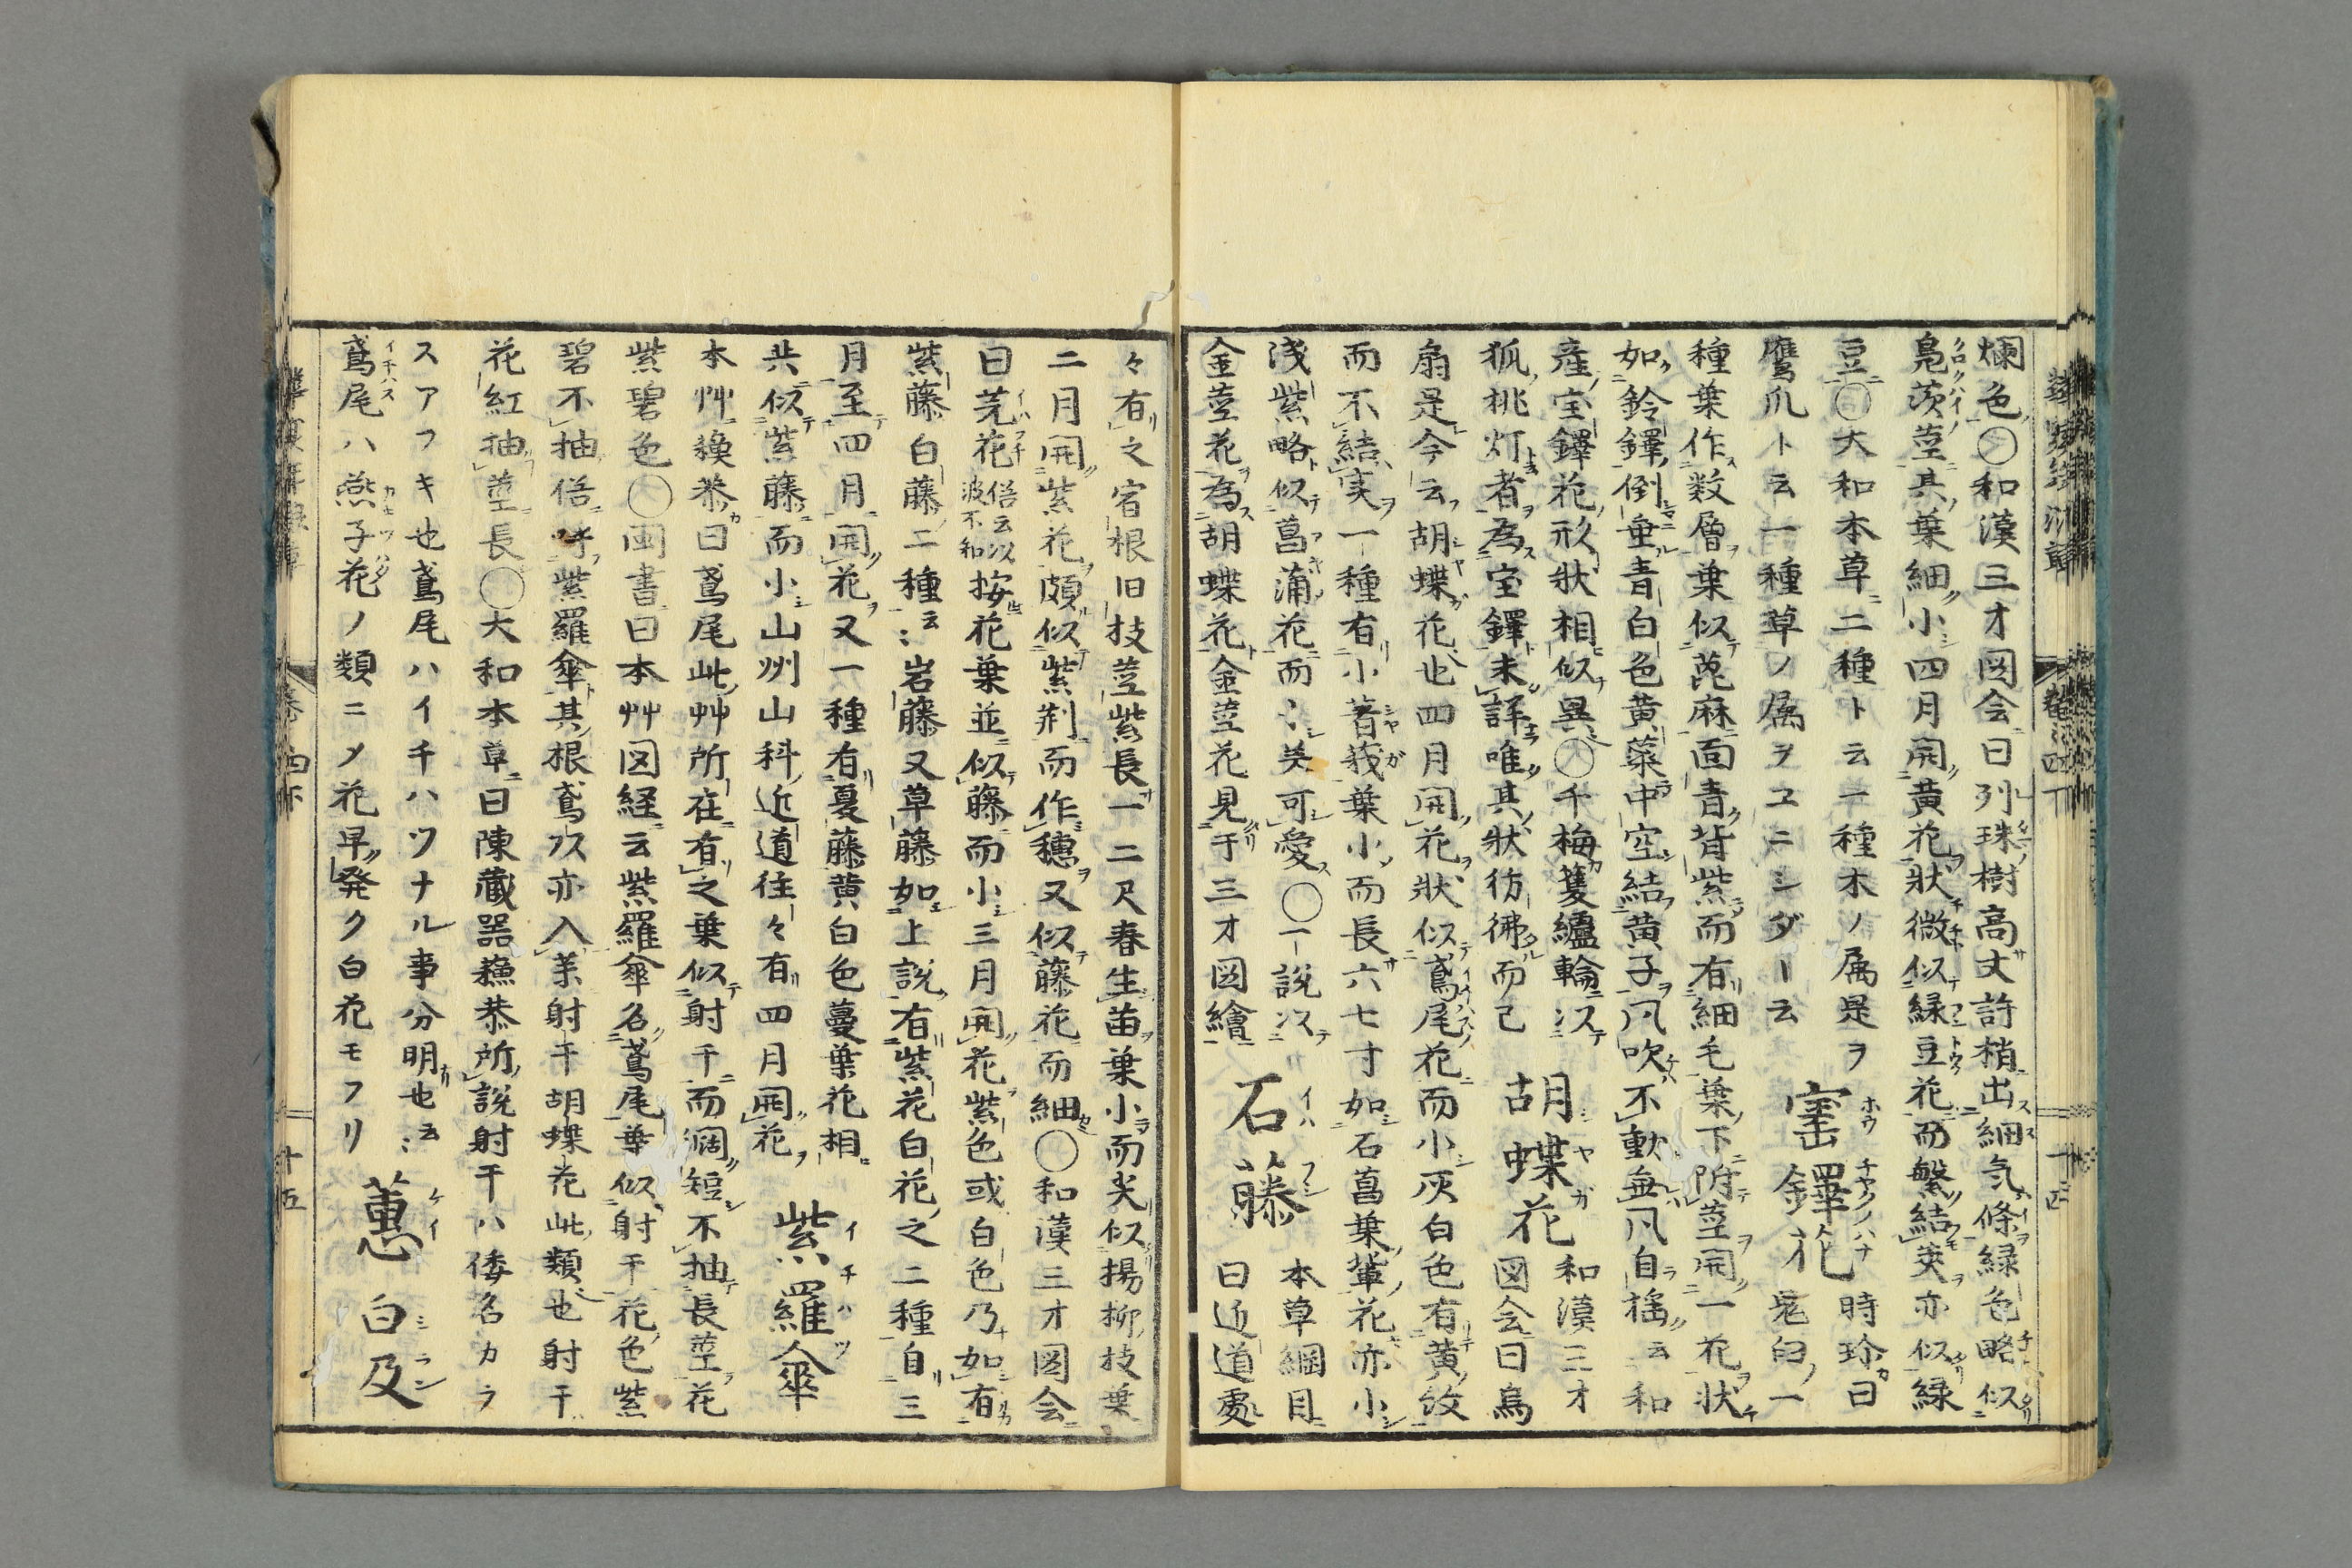 爛色〇和漢三才図会曰列珠樹高丈許梢出細気條緑色略似
鳧茨莖其葉細小四月開黄花狀微似緑豆花而繁結莢亦似緑
豆〇大和本草二種トニ云一種木ノ属是ヲ
鷹爪ト云一種草ノ属ヲヱニシダー云
寶鐸花
時珍曰
鬼臼ノ一
種葉作数層葉似蓖麻面青背紫而有細毛葉下附莖開一花状
如鈴鐸倒垂青白色黄蘂中空結黄子風吹不動無風自揺云和
産宝鐸花形狀相似異〇千梅蔞纑輪以
狐挑灯者為宝鐸未詳唯其狀彷彿而已
胡蝶花
和漢三才
図会曰烏
扇是今云胡蝶花也四月開花狀似鳶尾花而小灰白色有黄紋
而不結実一種有小著莪葉小而長六七寸如石菖葉輩花亦小
浅紫略似菖蒲花而〻美可愛〇一說以
金莖花為胡蝶花金莖花見于三才図繪
石藤
本草綱目
曰近道處
々有之宿根旧技莖紫長一二尺春生苗葉小而尖似揚柳技葉
二月開紫花頗似紫荊而作穗又似藤花而細〇和漢三才図会
曰芫花俗云以波不和按花葉並似藤而小三月開花紫色或白色乃如有
紫藤白藤二種云〻岩藤又草藤如上説有紫花白花之二種自三
月至四月開花又一種有夏藤黄白色蔓葉花相
共似紫藤而小山州山科近道往々有四月開花
紫羅傘
本艸藐恭曰鳶尾此艸所在有之葉似射干而濶短不抽長莖花
紫碧色〇閩書曰本艸図経云紫羅傘名鳶尾葉似射干花色紫
碧不抽俗呼紫羅傘其根鳶以亦入薬射干胡蝶花此類也射干
花紅抽莖長〇大和本草曰陳蔵器蘓恭所說射干ハ倭名カラ
スアフキ也鳶尾ハイチハツナル事分明也云〻
鳶尾ハ燕子花ノ類ニメ花早発ク白花モフリ
蕙
白及
巻四下
十五